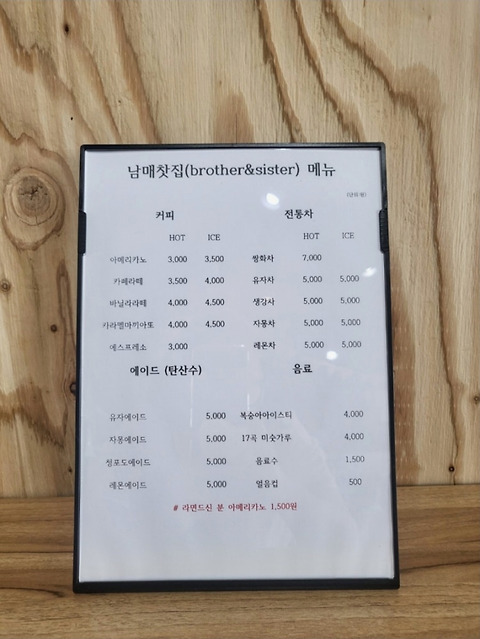 남매찻집(brother&sister) 메뉴
(단위:원)
커피 전통차
HOT ICE HOT ICE
아메리카노 3,000 3,500 쌍화차 7,000
카페라떼 3,500 4,000 유자차 5,000 5,000
바닐라라떼 4,000 4,500 생강차 5,000 5,000
카라멜마끼아또 4,000 4,500 자몽차 5,000 5,000
에스프레소 3,000 레몬차 5,000 5,000
에이드 (탄산수) 음료
유자에이드 5,000 복숭아아이스티 4,000
자몽에이드 5,000 17곡 미숫가루 4,000
청포도에이드 5,000 음료수 1,500
레몬에이드 5,000 얼음컵 500
# 라면드신 분 아메리카노 1,500원